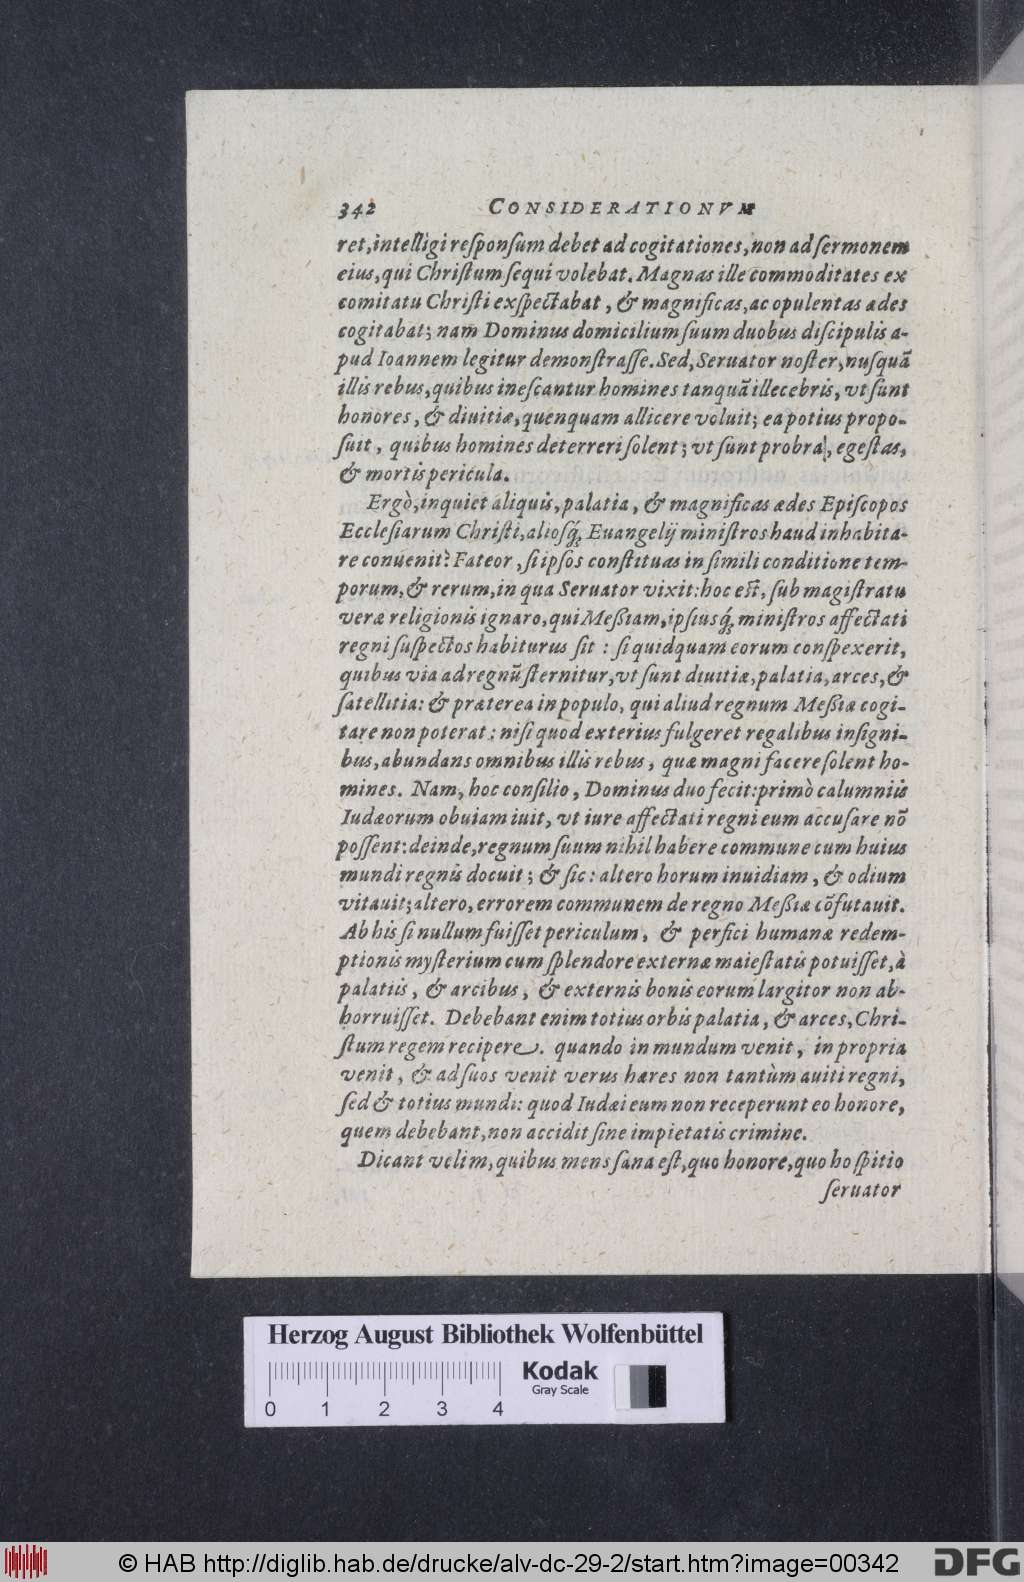 342 CONSIDERATIONVM
ret, intelligi reſponſum debet ad cogitationes, non ad ſermonem
eius, qui Chriſtum ſequi volebat. Magnas ille commoditates ex
comitatu Chriſti exſpectabat, & magnificas, ac opulentas ædes
cogitabat; nam Dominus domicilium ſuum duobus diſcipulis a-
pud Ioannem legitur demonſtraſſe. Sed, Seruator noſter, nuſquã
illis rebus, quibus ineſcantur homines tanquã illecebris, vt ſunt
honores, & diuitiæ, quenquam allicere voluit; ea potius propo-
ſuit, quibus homines deterreri ſolent; vt ſunt probra, egeſtas,
& mortis pericula.
Ergò, inquiet aliquis, palatia, & magnificas ædes Epiſcopos
Eccleſiarum Chriſti, alioſq́; Euangelij miniſtros haud inhabita-
re conuenit? Fateor, ſi ipſos conſtituas in ſimili conditione tem-
porum, & rerum, in qua Seruator vixit: hoc eſt, ſub magiſtratu
veræ religionis ignaro, qui Meßiam, ipſiusq́; miniſtros affectati
regni ſuſpectos habiturus ſit : ſi quidquam eorum conſpexerit,
quibus via ad regnũ ſternitur, vt ſunt diuitiæ, palatia, arces, &
ſatellitia: & præterea in populo, qui aliud regnum Meßiæ cogi-
tare non poterat: niſi quod exterius fulgeret regalibus inſigni-
bus, abundans omnibus illis rebus, quæ magni facere ſolent ho-
mines. Nam, hoc conſilio, Dominus duo fecit: primò calumniis
Iudæorum obuiam iuit, vt iure affectati regni eum accuſare nõ
poſſent: deinde, regnum ſuum nihil habere commune cum huius
mundi regnis docuit; & ſic: altero horum inuidiam, & odium
vitauit; altero, errorem communem de regno Meßiæ cõfutauit.
Ab his ſi nullum fuiſſet periculum, & perfici humanæ redem-
ptionis myſterium cum ſplendore externæ maieſtatis potuiſſet, à
palatiis, & arcibus, & externis bonis eorum largitor non ab-
horruiſſet. Debebant enim totius orbis palatia, & arces, Chri-
ſtum regem recipere. quando in mundum venit, in propria
venit, & ad ſuos venit verus hæres non tantùm auiti regni,
ſed & totius mundi: quod Iudæi eum non receperunt eo honore,
quem debebant, non accidit ſine impietatis crimine.
Dicant velim, quibus mens ſana eſt, quo honore, quo hoſpitio
ſeruator
Herzog August Bibliothek Wolfenbüttel
Kodak
Gray Scale
0 1 2 3 4
© HAB http://diglib.hab.de/drucke/alv-dc-29-2/start.htm?image=00342
DFG